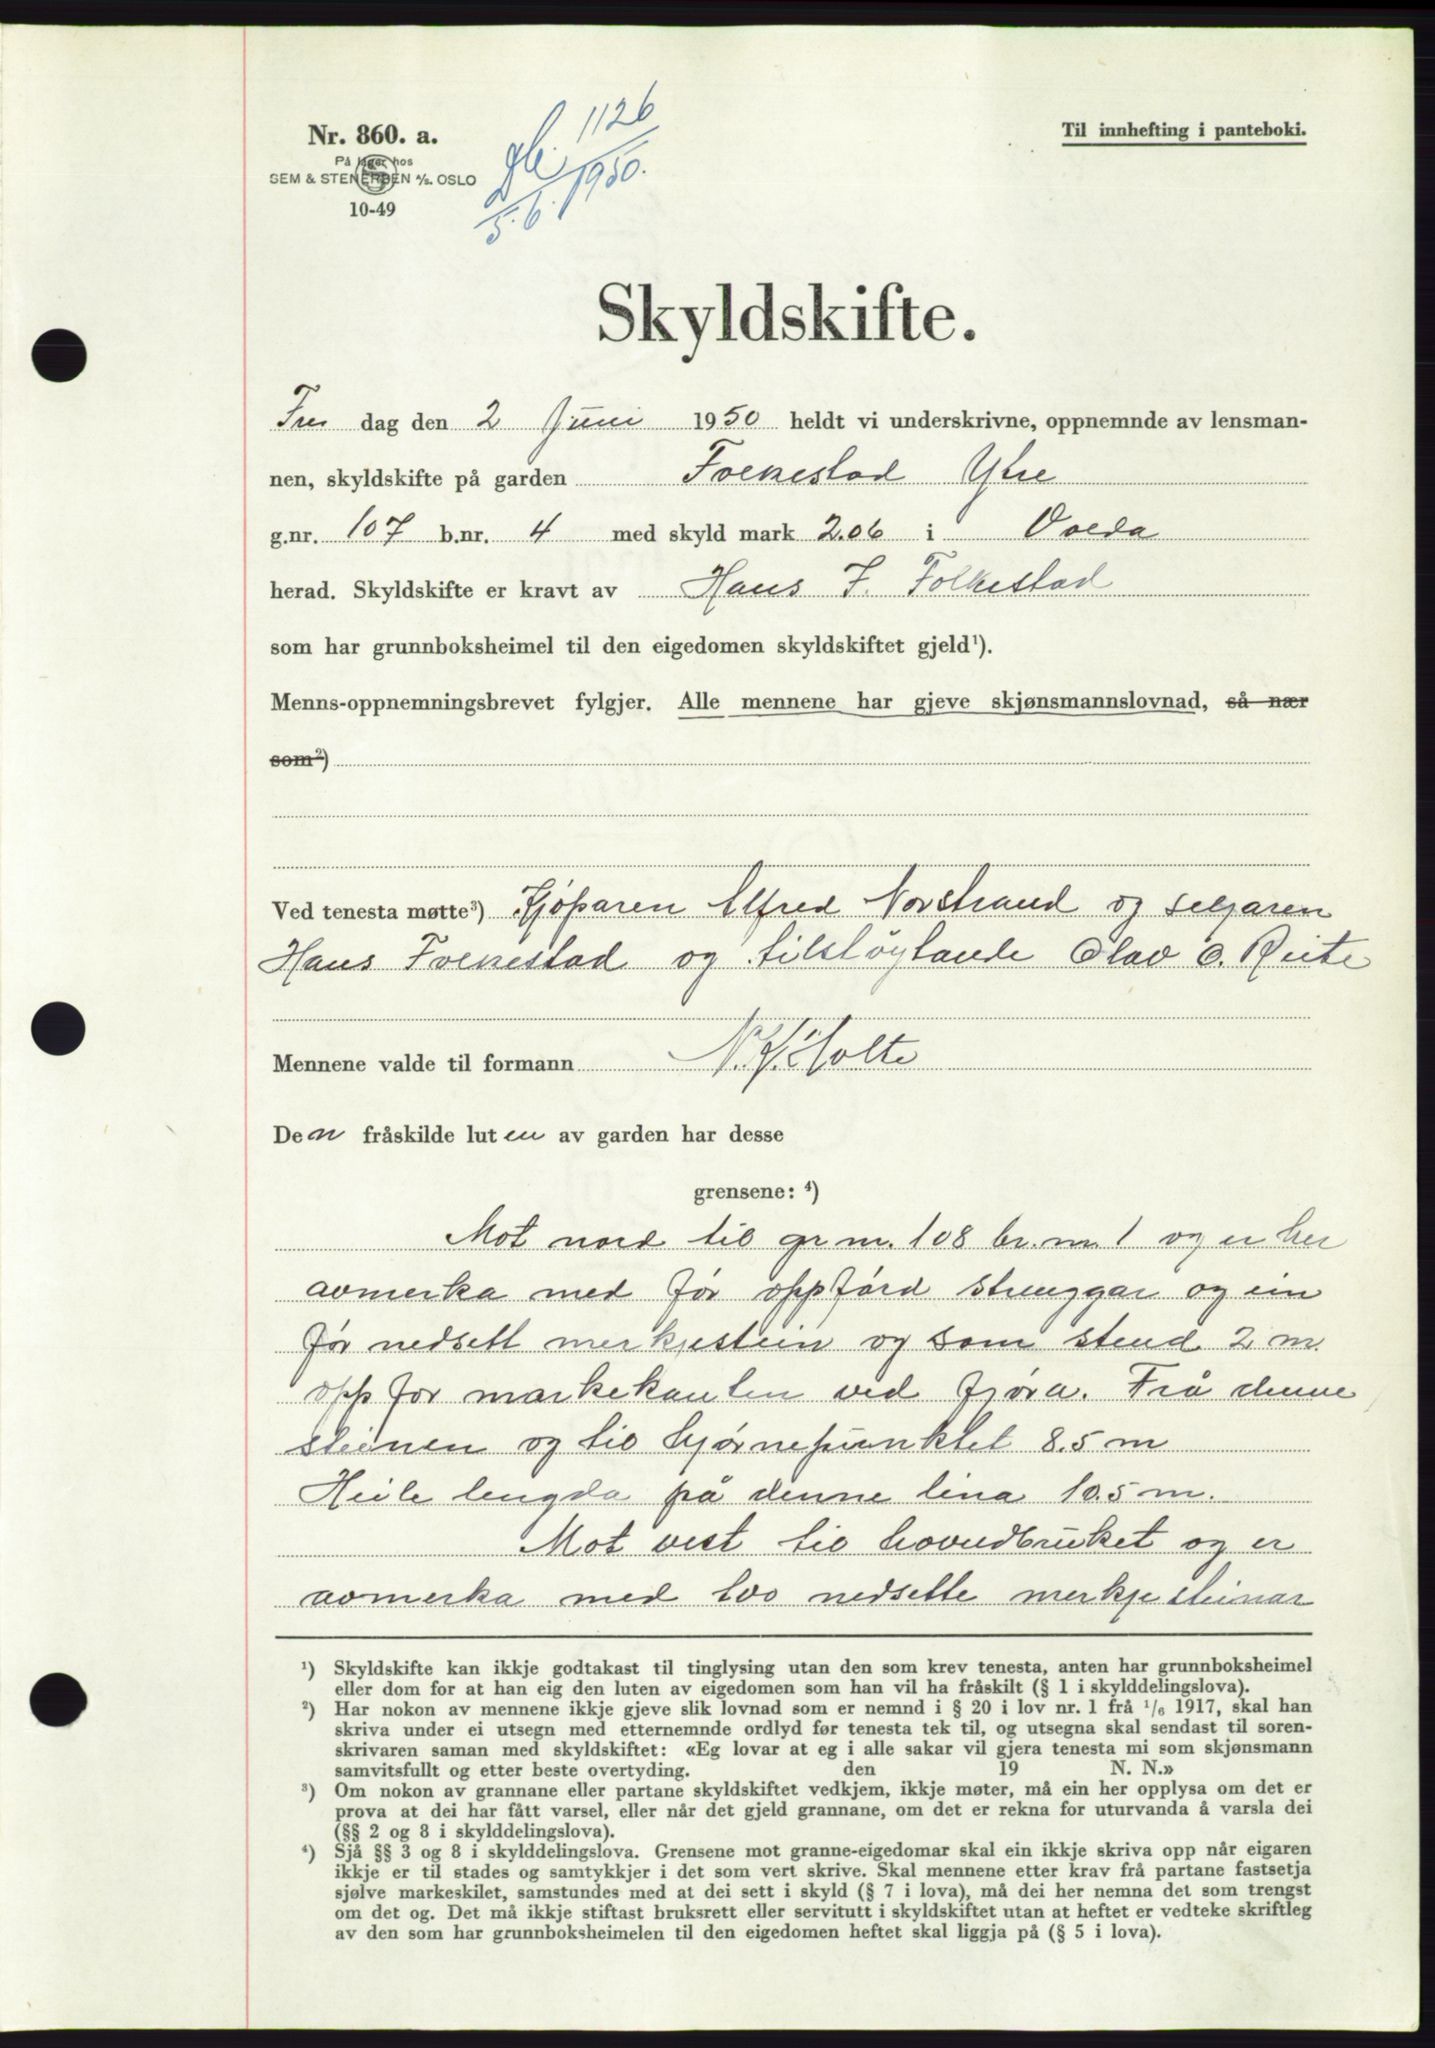 Nr. 860. a.
På lager hos
SEM & STENERSEN A/S. OSLO
10-49
1126
5.6. 1950.
Til innhefting i panteboki.
Skyldskifte.
Fre dag den 2 Juni 1950 heldt vi underskrivne, oppnemnde av lensman-
nen, skyldskifte på garden Folkestad Ytre
g.nr. 107 b.nr. 4 med skyld mark 2.06 i Volda
herad. Skyldskifte er kravt av Hans J. Folkestad
som har grunnboksheimel til den eigedomen skyldskiftet gjeld¹).
Menns-oppnemningsbrevet fylgjer. Alle mennene har gjeve skjønsmannslovnad, så nær
som²)
Ved tenesta møtte³) Kjøparen Alfred Norstrand og seljaren
Hans Folkestad og tilstøytande Olav O. Reite
Mennene valde til formann N. K. Holte
Den fråskilde luten av garden har desse
grensene: ⁴)
Mot nord til gr nr. 108 br. nr. 1 og er her
avmerka med før oppførd strenggar og ein
før nedsett merkjestein og som stend 2 m.
opp for markekanten ved fjøra. Frå denne
steinen og til hjørnepunktet 8.5 m
Heile lengda på denne lina 10.5 m.
Mot vest til hovudbruket og er
avmerka med too nedsette merkjesteinar
¹) Skyldskifte kan ikkje godtakast til tinglysing utan den som krev tenesta, anten har grunnboksheimel
eller dom for at han eig den luten av eigedomen som han vil ha fråskilt (§ 1 i skylddelingslova).
²) Har nokon av mennene ikkje gjeve slik lovnad som er nemnd i § 20 i lov nr. 1 frå ¹/₆ 1917, skal han
skriva under ei utsegn med etternemnde ordlyd før tenesta tek til, og utsegna skal sendast til soren-
skrivaren saman med skyldskiftet: «Eg lovar at eg i alle sakar vil gjera tenesta mi som skjønsmann
samvitsfullt og etter beste overtyding. den 19 N. N.»
³) Om nokon av grannane eller partane skyldskiftet vedkjem, ikkje møter, må ein her opplysa om det er
prova at dei har fått varsel, eller når det gjeld grannane, om det er rekna for uturvanda å varsla dei
(§§ 2 og 8 i skylddelingslova).
⁴) Sjå §§ 3 og 8 i skylddelingslova. Grensene mot granne-eigedomar skal ein ikkje skriva opp når eigaren
ikkje er til stades og samtykkjer i det som vert skrive. Skal mennene etter krav frå partane fastsetja
sjølve markeskilet, samstundes med at dei sett i skyld (§ 7 i lova), må dei her nemna det som trengst
om det og. Det må ikkje stiftast bruksrett eller servitutt i skyldskiftet utan at heftet er vedteke skriftleg
av den som har grunnboksheimelen til den eigedomen heftet skal liggja på (§ 5 i lova).